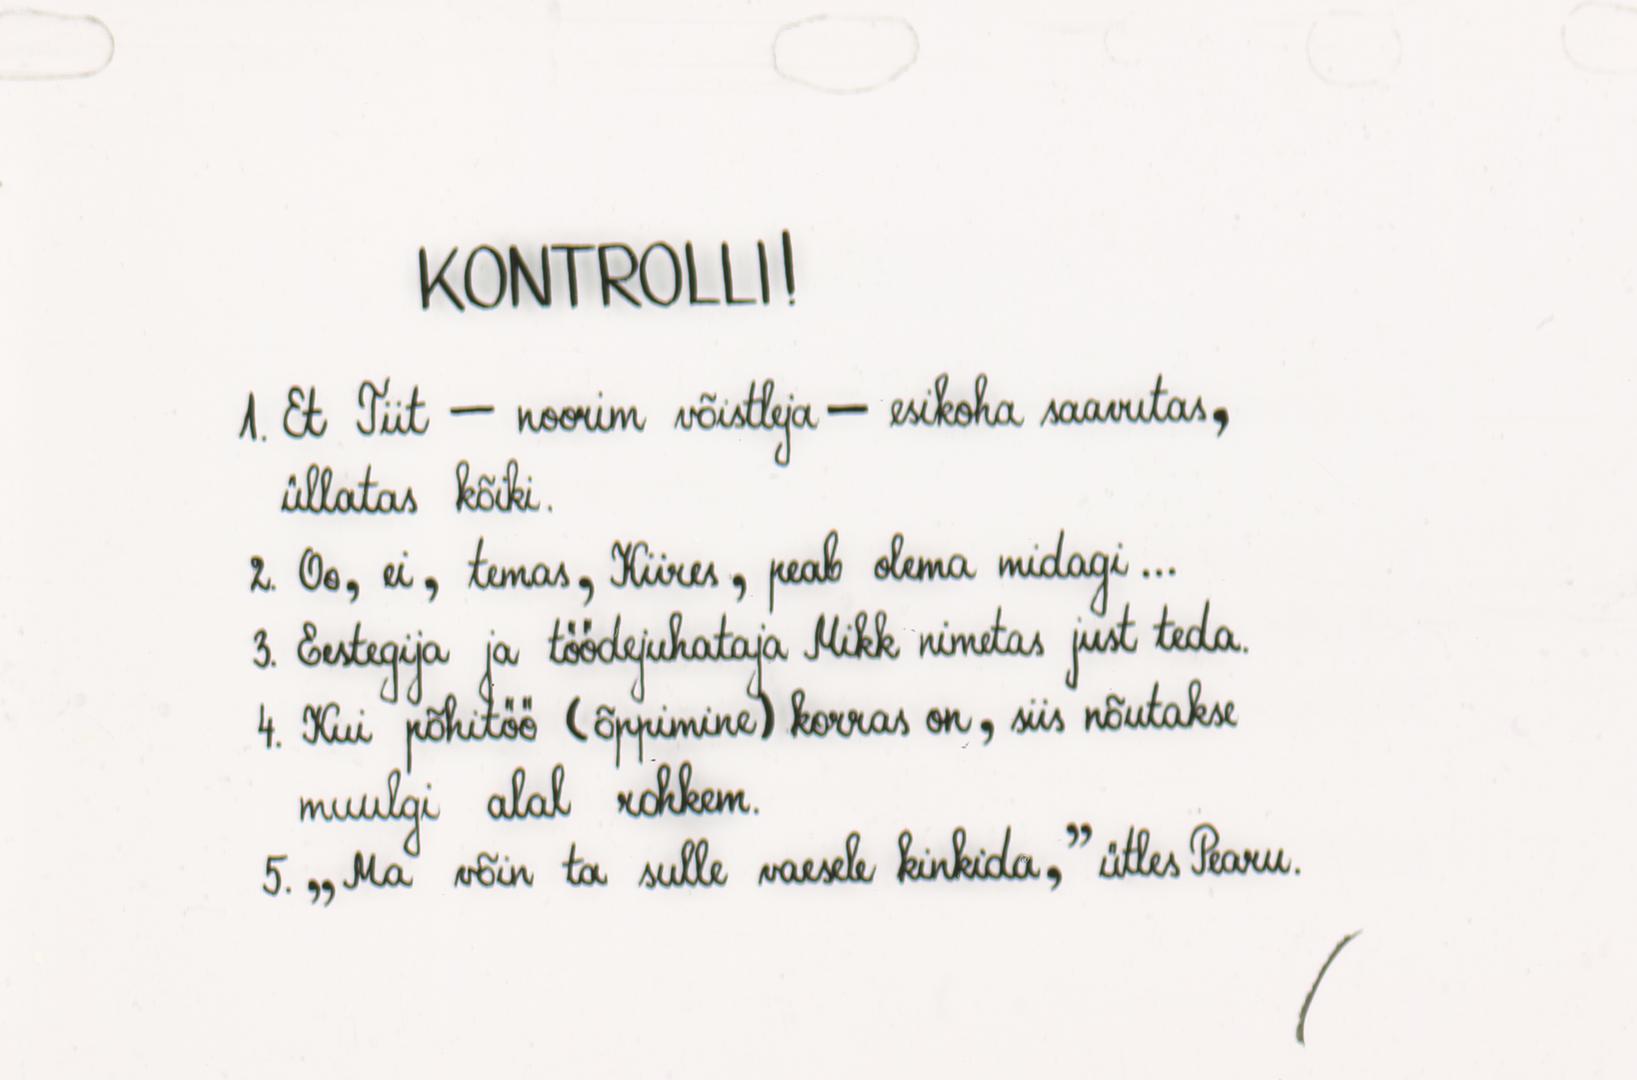 KONTROLLI!
1. Et Tiit – noorim võistleja – esikoha saavutas,
üllatas kõiki.
2. Oo, ei, temas, Kiires, peab olema midagi...
3. Eestegija ja töödejuhataja Mikk nimetas just teda.
4. Kui põhitöö (õppimine) korras on, siis nõutakse
muulgi alal rohkem.
5. „Ma võin ta sulle vaesele kinkida,” ütles Pearu.